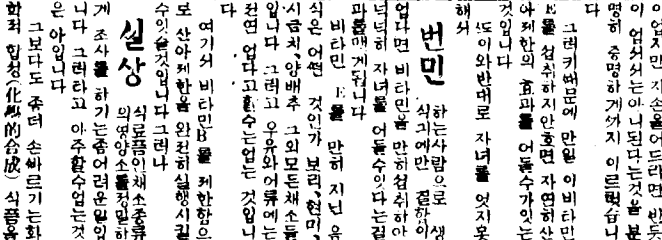 이업지만 자손을어드려면 반듯
이 업서서는아니된다는것을 분
명히 증명하게까지 이르럿습니
다
그러키때문에 만일 이비타민
E를 섭취하지안호면 자연히산
아제한의 효과를 어들수가잇는
것입니다
이와반대로 자녀를 엇지못
해서
번민
하는사람으로 생
식긔에만 결함이
업다면 비타민을 만히섭취하야
넉넉히 자녀를 어들수잇다는결
과를맷게됩니다
비타민 E를 만히 지닌 음
식은 어떤 것인가 보리、현미、
시금치、양배추 그외모든채소들
입니다 그리고 우유와어류에는
전연 업다고할수는업는 것입니
다
여긔서 비타민B를 제한함으
로 산아제한을 완전히실행시킬
수잇슬것입니다그러나
실상
식료품인채소종류
의영양소를정밀하
게 조사를 하기는좀어려운일입
니다 그러타고 아주할수업는것
은 아입니다
그보다도 좀더 손빠르기는화
학적 합성(化學的合成) 식품을